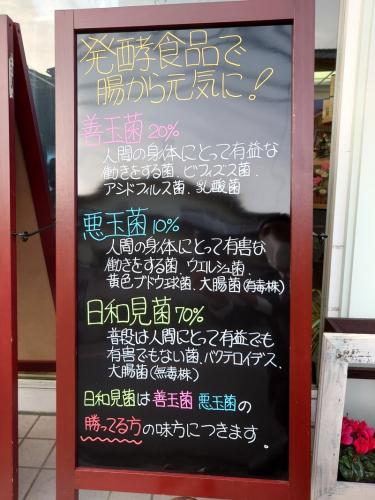 発酵食品で
腸から元気に！
善玉菌 20%
人間の身体にとって有益な
働きをする菌、ビフィズス菌、
アシドフィルス菌、乳酸菌
悪玉菌 10%
人間の身体にとって有害な
働きをする菌、ウエルシュ菌、
黄色ブドウ球菌、大腸菌(有毒株)
日和見菌 70%
普段は人間にとって有益でも
有害でもない菌、バクテロイデス、
大腸菌(無毒株)
日和見菌は 善玉菌 悪玉菌の
勝ってる方の味方につきます。